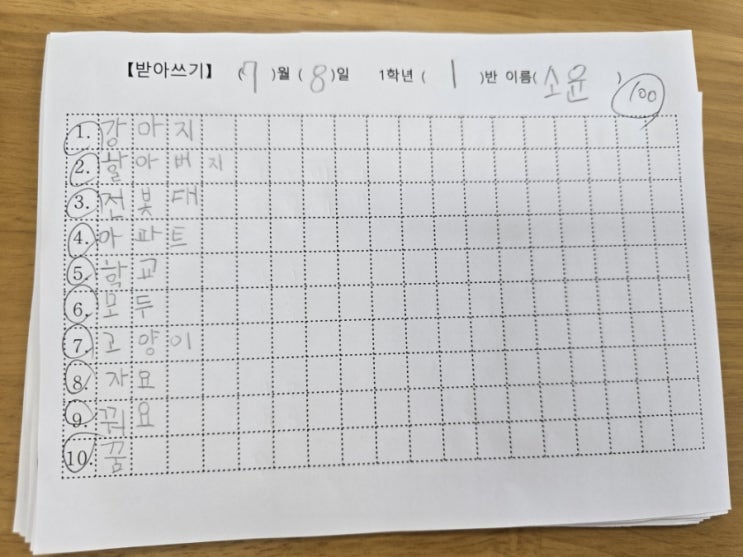 【받아쓰기】 (7)월 (8)일 1학년 ( 1 )반 이름(소윤)
100
1. 강아지
2. 할아버지
3. 전봇대
4. 아파트
5. 학교
6. 모두
7. 고양이
8. 자요
9. 꿔요
10. 꿈